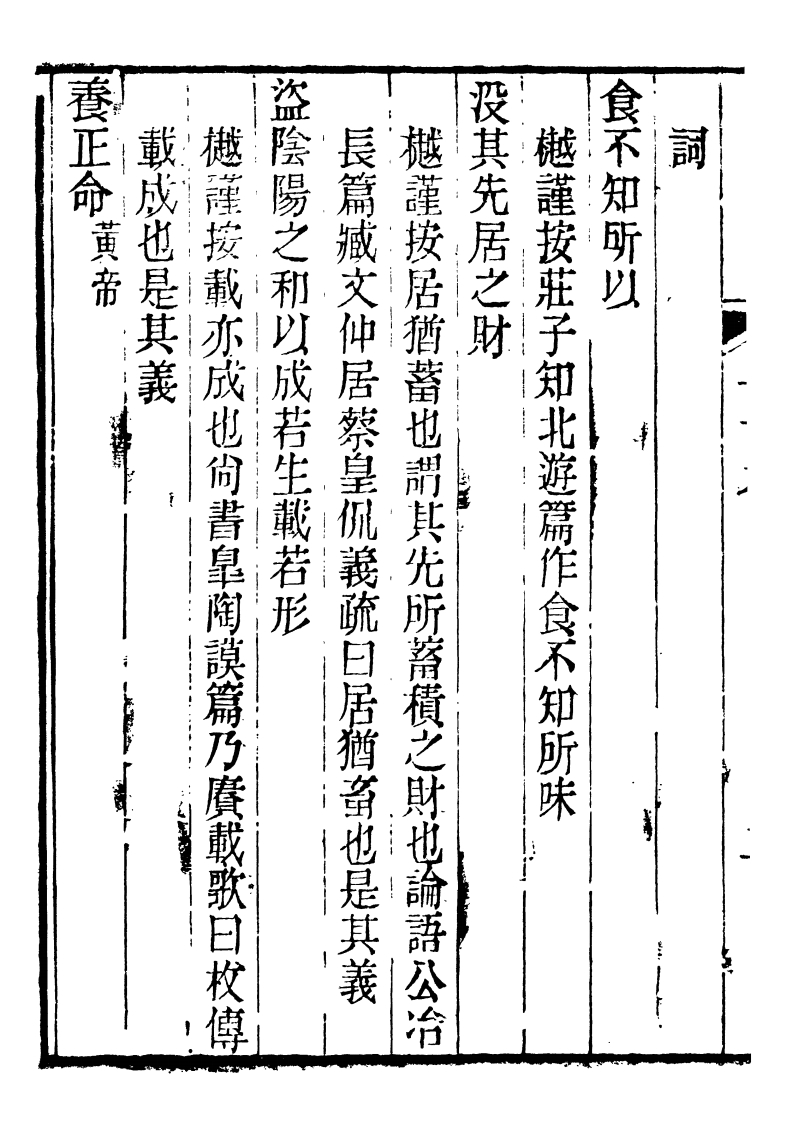 詞
食不知所以
樾謹按莊子知北遊篇作食不知所味
没其先居之財
樾謹按居猶蓄也謂其先所蓄積之財也論語公冶
長篇臧文仲居蔡皇侃義疏曰居猶畜也是其義
盜陰陽之和以成若生載若形
樾謹按載亦成也尙書臯陶謨篇乃賡載歌曰枚傳
載成也是其義
養正命黃帝